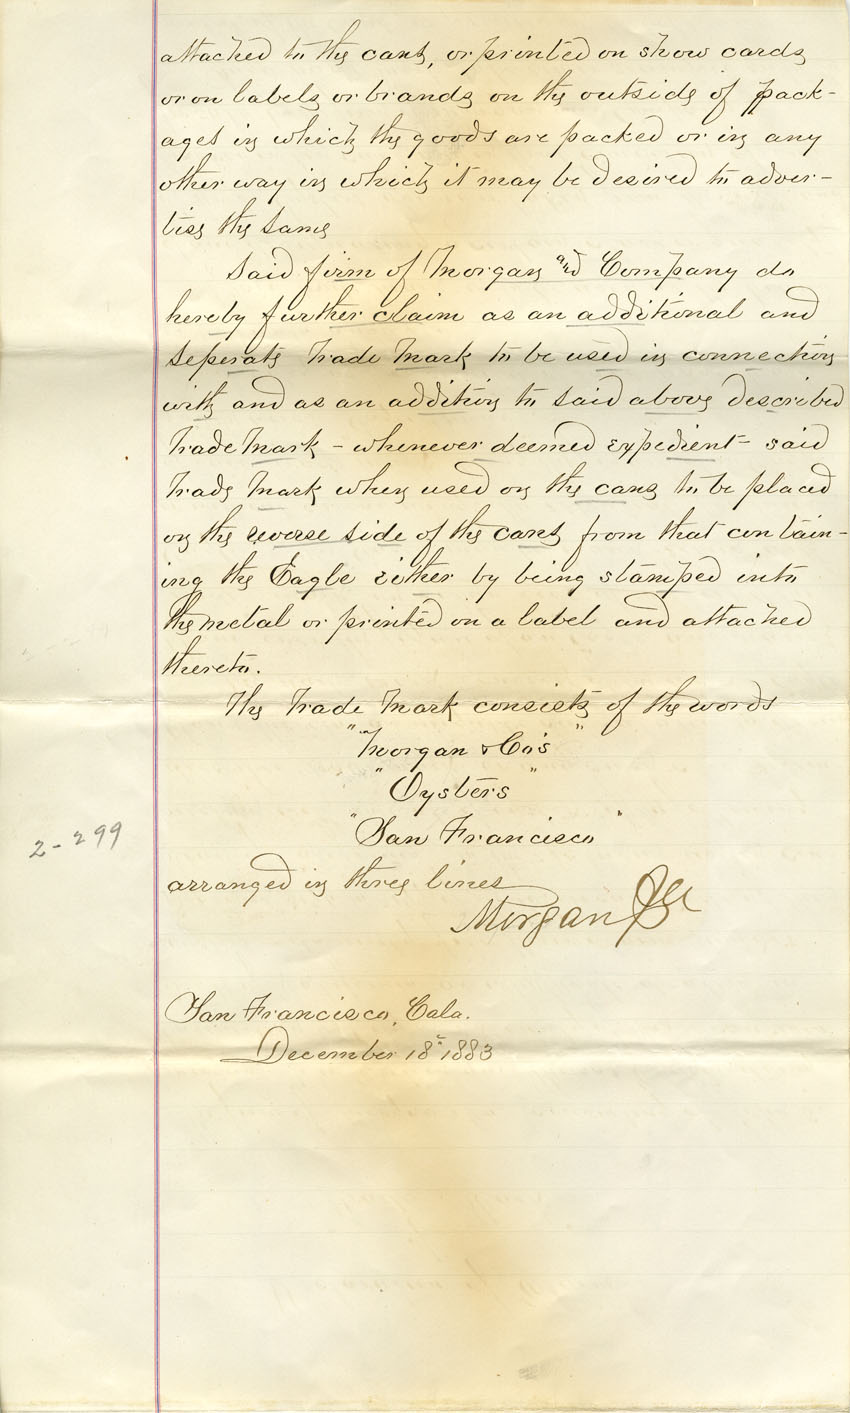 attached to the cans, or printed on show cards
or on labels or brands on the outside of pack-
ages in which the goods are packed or in any
other way in which it may be desired to adver-
tise the same
Said firm of Morgan and Company do
hereby further claim as an additional and
seperate Trade Mark to be used in connection
with and as an addition to said above described
Trade Mark - whenever deemed expedient - said
Trade Mark when used on the cans to be placed
on the reverse side of the cans from that contain-
ing the Eagle either by being stamped into
the metal or printed on a label and attached
thereto.
The Trade Mark consists of the words
"Morgan & Co's"
"Oysters"
"San Francisco"
2-299
arranged in three lines
Morgan & Co
San Francisco, Cala.
December 18th 1883